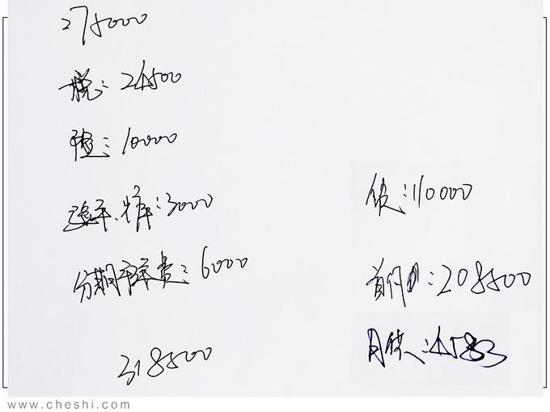 275000
税:24500
险:10000
选车、上牌:3000
分期手续费:6000
318500
贷:110000
首付:208500
月供:4583
www.cheshi.com